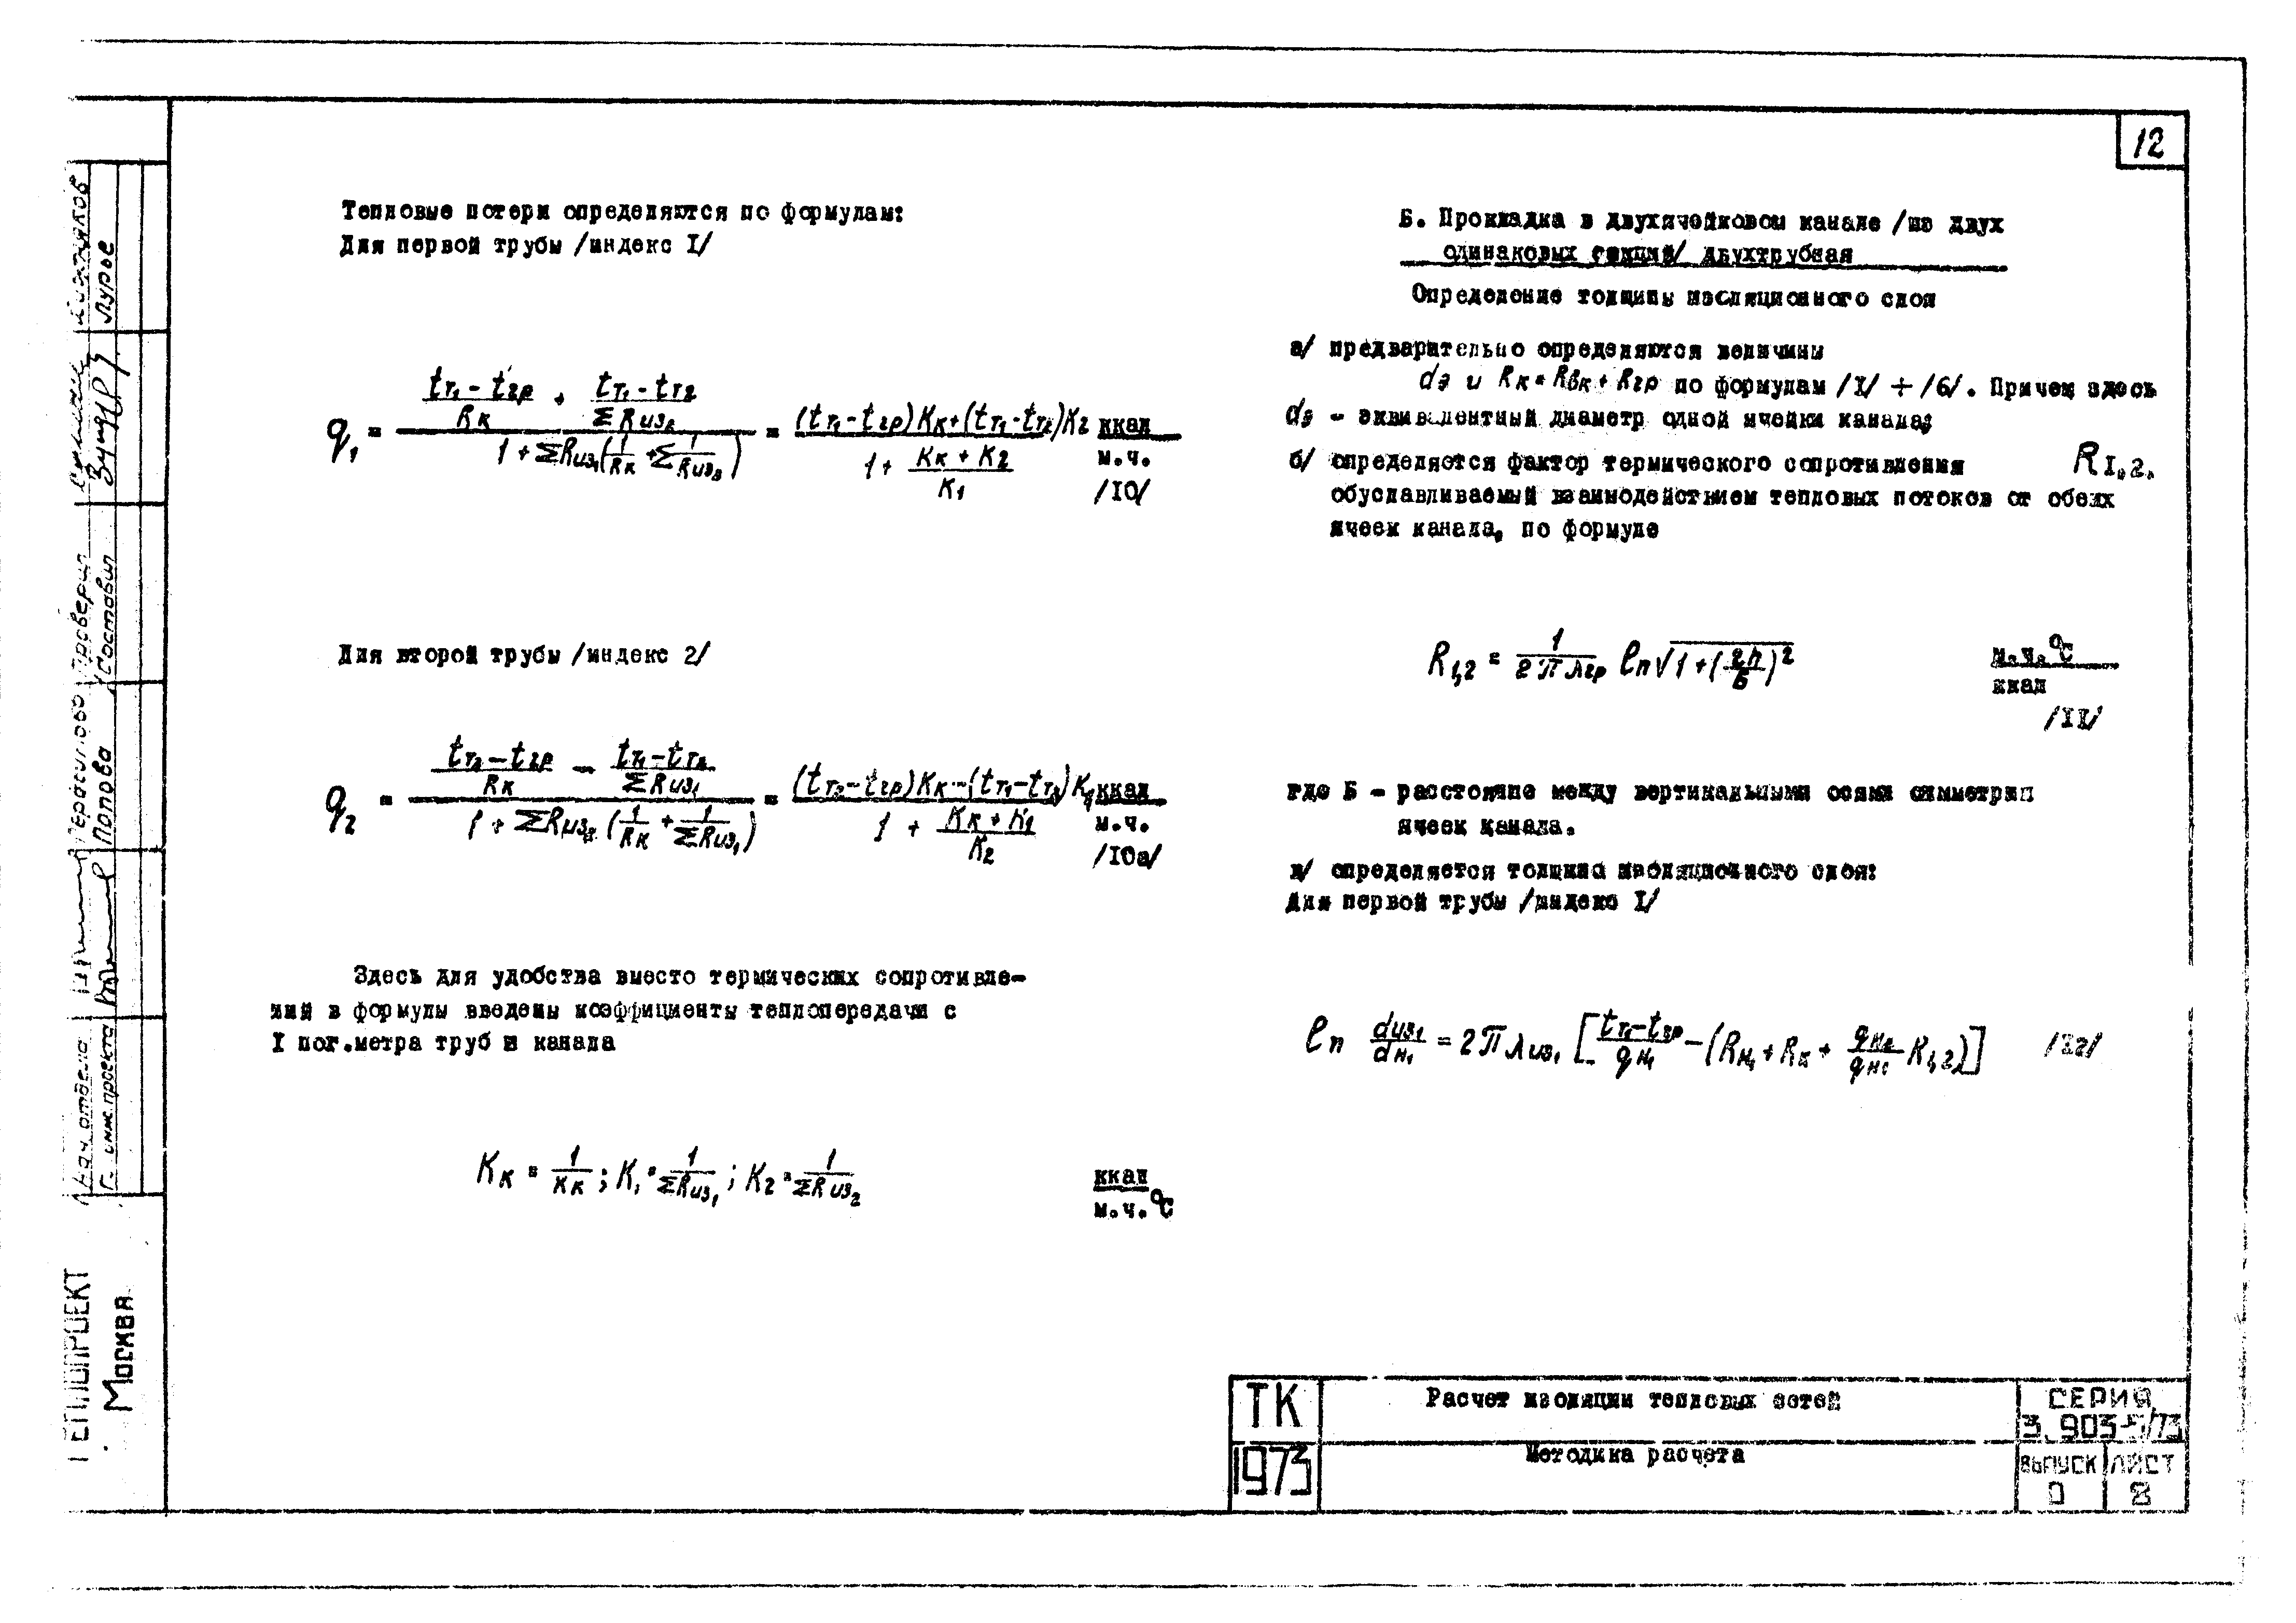 12
Тепловые потери определяются по формулам:
Для первой трубы /индекс I/
q₁ = ((tт₁ - tгр)/Rк + (tт₁ - tт2)/ΣRиз₂) / (1 + ΣRиз₁(1/Rк + Σ1/Rиз₂)) = ((tт₁ - tгр)Kк + (tт₁ - tт₂)K2) / (1 + (Kк + K2)/K1) ккал/м.ч.
/IO/
Для второй трубы /индекс 2/
q₂ = ((tт₂ - tгр)/Rк - (tт₁ - tт₂)/ΣRиз₁) / (1 + ΣRиз₂(1/Rк + 1/ΣRиз₁)) = ((tт₂ - tгр)Kк - (tт₁ - tт₂)K₁) / (1 + (Kк + K1)/K2) ккал/м.ч.
/IOа/
Здесь для удобства вместо термических сопротивле-
ний в формулы введены коэффициенты теплопередачи с
I пог.метра труб и канала
Kк = 1/Kк ; K₁ = 1/ΣRиз₁ ; K2 = 1/ΣRиз₂ ккал/м.ч.°С
Б. Прокладка в двухячейковом канале /из двух
одинаковых секций/ двухтрубная
Определение толщины изоляционного слоя
а/ предварительно определяются величины
dэ и Rк = Rвк + Rгр по формулам /I/ ÷ /6/. Причем здесь
dэ - эквивалентный диаметр одной ячейки канала;
б/ определяется фактор термического сопротивления R I,2,
обуславливаемый взаимодействием тепловых потоков от обеих
ячеек канала, по формуле
R₁,₂ = 1/(2πλгр) ln√(1 + (2h/б)²) м.ч.°С/ккал
/II/
где Б - расстояние между вертикальными осями симметрии
ячеек канала.
в/ определяется толщина изоляционного слоя:
Для первой трубы /индекс I/
ln dиз₁/dн₁ = 2πλиз₁ [(tт₁ - tгр)/qн₁ - (Rн₁ + Rк + qн₂/qн₁ R₁,₂)] /I2/
ТК
1973
Расчет изоляции тепловых сетей
Методика расчета
СЕРИЯ
3.903-5/73
ВЫПУСК ЛИСТ
0 8
Нач. отдела
Гл. инж. проекта
Герасимова
Попова
Проверил
Составил
Лурье
ТЕПЛОПРОЕКТ
МОСКВА